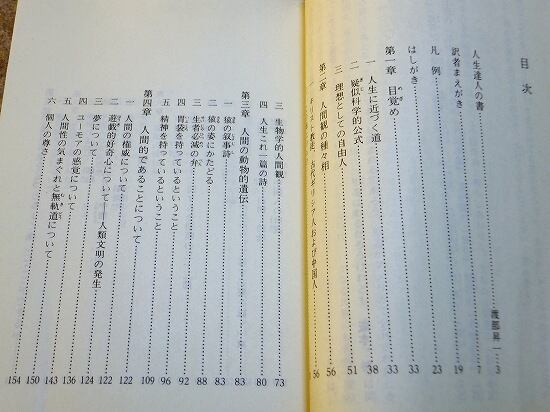 目次
人生達人の書……渡部昇一…3
訳者まえがき……7
凡例……19
はしがき……23
第一章 目覚め……33
一 人生に近づく道……33
二 疑似科学的公式……38
三 理想としての自由人……51
第二章 人間観の種々相……56
一 キリスト教徒、古代ギリシア人および中国人……56
三 生物学的人間観……73
四 人生これ一篇の詩……80
第三章 人間の動物的遺伝……83
一 猿の叙事詩……83
二 猿の姿にかたどる……88
三 生者必滅の弁……83
四 胃袋を持っているということ……92
五 精神を持っているということ……96
第四章 人間的であることについて……109
一 人間の権威について……122
二 遊戯的好奇心について――人類文明の発生……122
三 夢について……124
四 ユーモアの感覚について……136
五 人間性の気まぐれと無軌道について……143
六 個人の尊さ……150
154